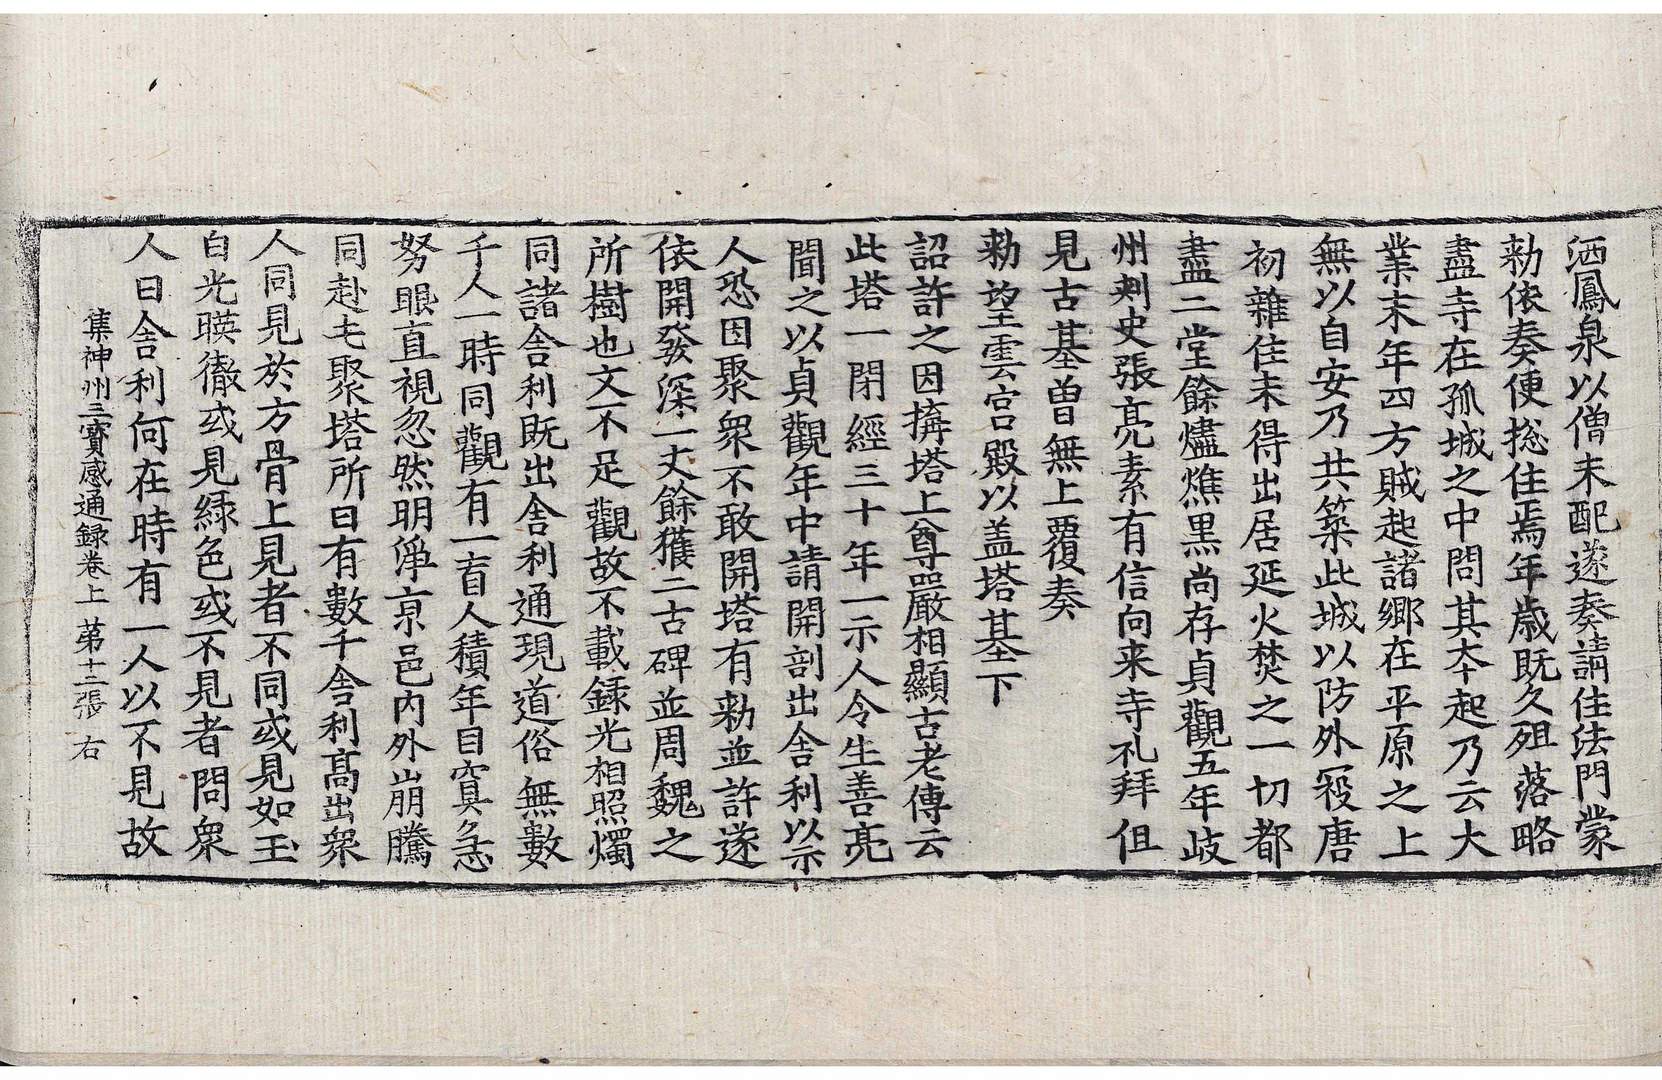 洒鳳泉以僧未配遂奏請住法門蒙
勑依奏便捴住焉年歳既久殂落略
盡寺在孤城之中問其夲起乃云大
業末年四方賊起諸鄉在平原之上
無以自安乃共築此城以防外冦唐
初雜住未得出居延火焚之一切都
盡二堂餘燼燋黒尚存貞觀五年歧
州刾史張亮素有信向来寺礼拜但
見古基曽無上覆奏
勑望雲宫殿以盖塔基下
詔許之因搆塔上尊嚴相顯古老傳云
此塔一閉經三十年一示人令生善亮
聞之以貞觀年中請開剖出舍利以示
人恐因聚衆不敢開塔有勑並許遂
依開發深一丈餘獲二古碑並周魏之
所樹也文不足觀故不載録光相照燭
同諸舍利既出舍利通現道俗無數
千人一時同觀有一盲人積年目冥急
努眼直視忽然明淨京邑内外崩騰
同赴屯聚塔所日有數千舍利髙出衆
人同見於方骨上見者不同或見如玉
白光暎徹或見緑色或不見者問衆
人曰舍利何在時有一人以不見故
集神州三寳感通録卷上 苐十二張 右